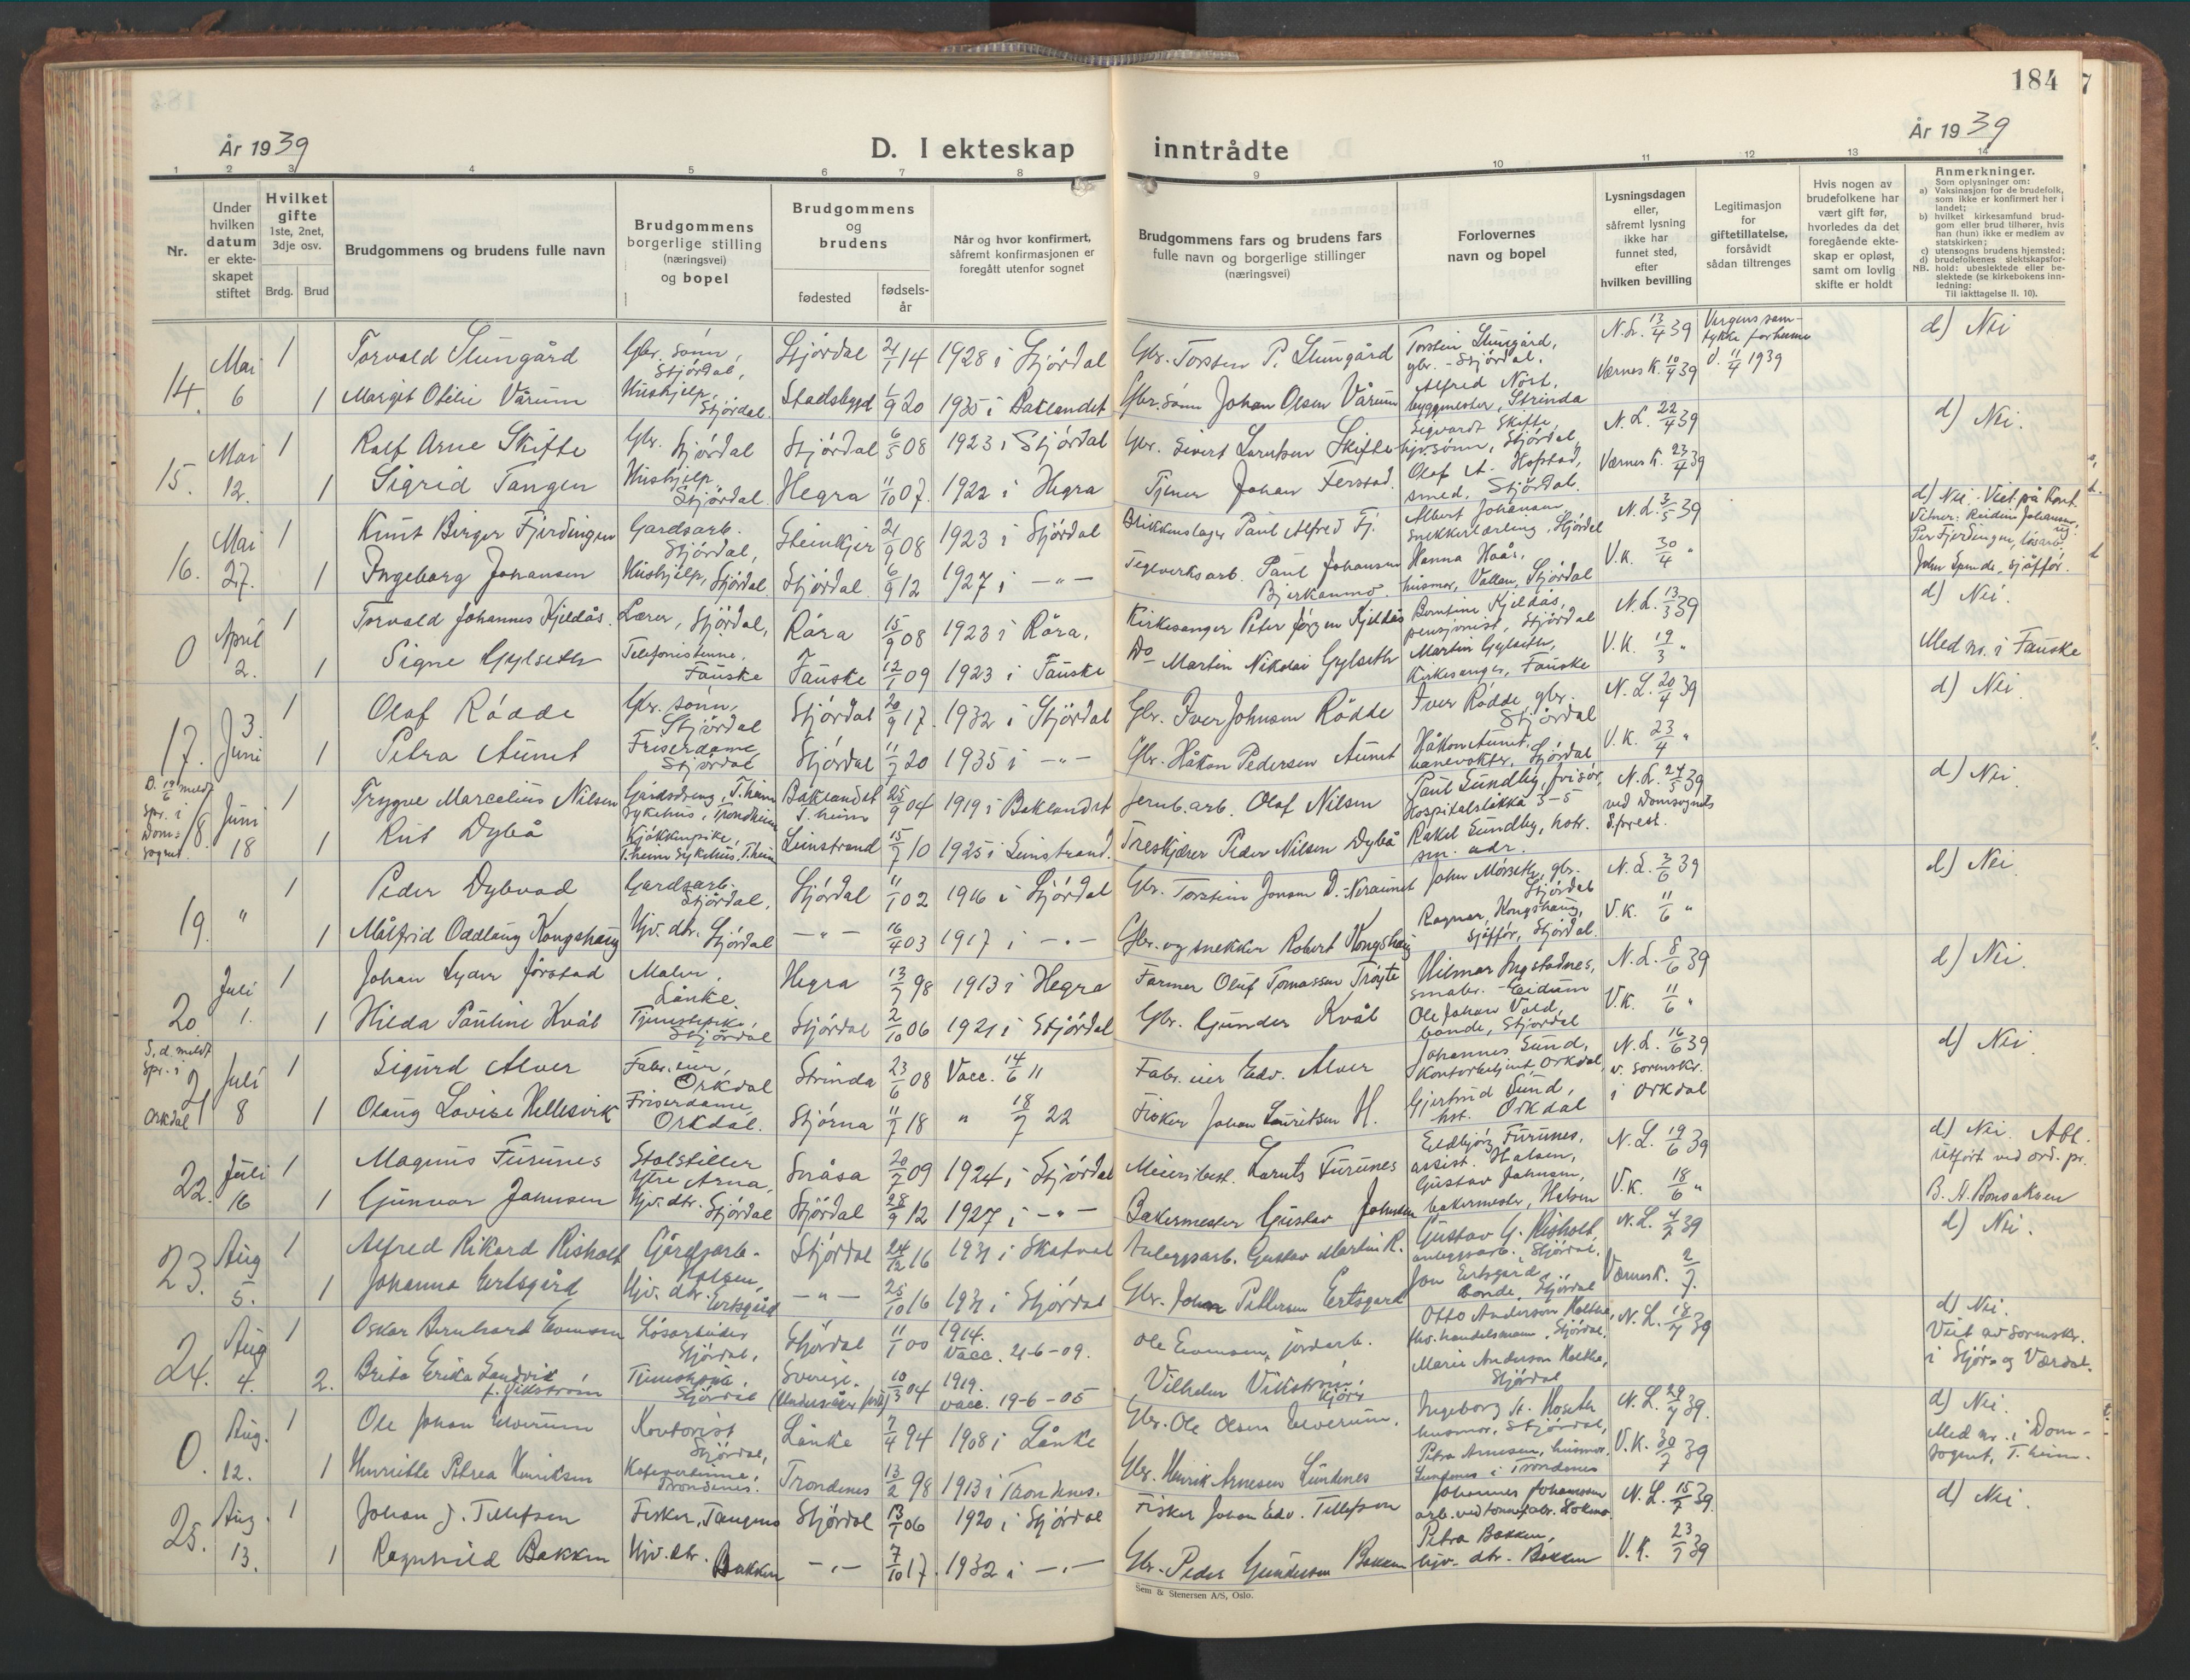 184
År 1939
D. I ekteskap inntrådte
År 1939
1 2 3 4 5 6 7 8 9 10 11 12 13 14
Nr.
Under hvilken datum er ekteskapet stiftet
Hvilket gifte 1ste, 2net, 3dje osv.
Brdg. Brud
Brudgommens og brudens fulle navn
Brudgommens borgerlige stilling (næringsvei) og bopel
Brudgommens og brudens
fødested
fødselsår
Når og hvor konfirmert, såfremt konfirmasjonen er foregått utenfor sognet
Brudgommens fars og brudens fars fulle navn og borgerlige stillinger (næringsvei)
Forlovernes navn og bopel
Lysningsdagen eller, såfremt lysning ikke har funnet sted, efter hvilken bevilling
Legitimasjon for giftetillatelse, forsåvidt sådan tiltrenges
Hvis nogen av brudefolkene har vært gift før, hvorledes da det foregående ekteskap er opløst, samt om lovlig skifte er holdt
Anmerkninger.
Som oplysninger om:
a) Vaksinasjon for de brudefolk, som ikke er konfirmert her i landet;
b) hvilket kirkesamfund brudgom eller brud tilhører, hvis han (hun) ikke er medlem av statskirken;
c) utensogns brudens hjemsted;
d) brudefolkenes slektskapsforhold: ubeslektede eller beslektede (se kirkebokens innledning:
NB.
Til iakttagelse II. 10).
14. Mai 6 1 Torvald Stungård Gbr. sønn, Stjørdal, Stjørdal 21/1 14 1928 i Stjørdal Gbr. Torsten P. Stungård Torstein Stungård, gbr. - Stjørdal. N. L. 13/4 39 Vergens samtykke forhunne d) Nei
1 Margit Otelie Vårum Hushjelp, Stjørdal. Stadsbygd 6/9 20 1935 i Baklandet Gbr. sønn Johan Olsen Vårum Alfred Nört, byggmester, Strinda Værnes K. 10/4 39 d. 11/4 1939
15. Mai 12. 1 Ralf Arne Skifte Gbr. Stjørdal Stjørdal 6/5 08 1923 i Stjørdal Gbr. Sivert Larntsen Skifte Sigvardt Skifte, hjv. sønn, Stjørdal, N. L. 22/4 39 d) Nei.
1 Sigrid Tangen Hushjelp Stjørdal. Hegra 11/10 07. 1922 i Hegra Tjener Johan Ferstad. Olaf A. Hofstad, smed, Stjørdal. Værnes K. 23/4 39
16. Mai 27. 1 Knut Birger Fjerdingen Gardsarb. Stjørdal, Steinkjer 21/9 08 1923 i Stjørdal Blikkenslager Paul Alfred Fj. Albert Johansen, snekkerlærling, Stjørdal N. L. 3/5 39 d) Nei. Viet på Kont. Vitner: Reidun Johansen, og Per Fjerdingen, løsarb.
1 Ingeborg Johansen Hushjelp, Stjørdal. Stjørdal. 6/9 12 1927 i —"— Teglverksarb. Paul Johansen Bjerkanmo. Hanna Haår, husmor, Vollan, Stjørdal V. K. 30/4 " John Spende, sjåffør.
0 April 2. 1 Torvald Johannes Kjeldås. Lærer, Stjørdal, Røra 15/9 08 1923 i Røra. Kirkesanger Peter Jørgen Kjeldås Berntine Kjeldås, pensjonist, Stjørdal N. L. 13/3 39 d) Nei.
1 Signe Gylseth Telefonistinne, Fauske Fauske 12/1 09 1923 i Fauske Do Martin Nikolai Gylseth Martin Gylseth, Kirkesanger, Fauske V. K. 19/3 " Med nr. i Fauske
17. 3. Juni 1 Olaf Rødde Gbr. sønn, Stjørdal Stjørdal 20/9 17. 1932 i Stjørdal Gbr. Iver Johnsen Rødde Iver Rødde, gbr. Stjørdal N. L. 20/4 39 d) Nei.
1 Petra Aunet Friserdame Stjørdal Stjørdal 11/7 20 1935 i —"— Gbr. Håkon Pedersen Aunet Håkon Aunet, banevokter, Stjørdal V. K. 23/4 "
D. 19/6 meldt spr. i Domsognet. 18. Juni 18 1 Trygve Marcelius Nilsen Gårdsdreng, T.heim Sykehus, Trondheim Baklandet T.heim 25/9 04 1919 i Baklandet Jernb.arb. Olaf Nilsen Paul Sundby, frisør, Hospitalsløkka 3-5 N. L. 24/5 39 ved Domsognets S.prest. d) Nei
1 Rut Dybå Kjøkkenpike, T.heim Sykehus, T.heim Leinstrand 15/7 10 1925 i Leinstrand. Treskjærer Peder Nilsen Dybå Rakel Sundby, hstr. sm. adr.
19. " 1 Peder Dybvad Gardsarb. Stjørdal, Stjørdal 11/1 02 1916 i Stjørdal Gbr. Torstein Jonsen D. - Neraunet John Mørseth, gbr. Stjørdal N. L. 3/6 39 d) Nei
1 Målfrid Oddlaug Kongshaug Hjv. dtr. Stjørdal —"— 16/4 03 1917 i —"— Gbr. og snekker Robert Kongshaug Ragnar Kongshaug, sjåffør, Stjørdal. V. K. 11/6 "
20. Juli 1. 1 Johan Lyder Jørstad Maler, Lånke. Hegra 13/7 98 1913 i Hegra Farmer Oluf Tomassen Trøyte Hilmar Ingstadnes, småbr. - Eidum N. L. 8/6 39 d) Nei.
1 Hilda Pauline Kvål Tjenestepike, Stjørdal Stjørdal 2/10 06 1921 i Stjørdal Gbr. Gunder Kvål Ole Johan Vold, bonde, Stjørdal V. K. 11/6 "
S. d. meldt spr. i Orkdal 21 Juli 8 1 Sigurd Alver Fabr. eier, Orkdal Strinda 23/6 08 Vacc. 14/6 11 Fabr. eier Edv. Alver Johannes Sund, Kontorbetjent Orkdal, N. L. 16/6 39 v. sorenskr. i Orkdal d) Nei.
1 Olaug Lovise Hellesvik Friserdame, Orkdal. Stjørna 11/7 18 " 18/7 22 Fisker Johan Lauritsen H. Gjertrud Sund, hst. Orkdal
22. Juli 16 1 Magnus Furunes Stolstiller Ytre Arna, Snåsa 20/2 09 1924 i Stjørdal Meieribest. Larents Furunes Eldbjørg Furunes, assist. Halsen, N. L. 19/6 39 d) Nei. Abt. utført ved ord. pr.
1 Gunvor Jahnsen Hjv. dtr. Stjørdal Stjørdal 28/9 12 1927 i —"— Bakermester Gustav Jahnsen Gustav Jahnsen, bakermester, Halsen V. K. 18/6 " B. A. Bonsaksen
23. Aug 5. 1 Alfred Rikard Risholt Gårdsarb. Halsen, Stjørdal 24/12 16 1931 i Skatval Anleggsarb. Gustav Martin R. Gustav G. Risholt, anleggsarb. Stjørdal, N. L. 4/7 39 d) Nei.
1 Johanna Ertsgård Hjv. dtr. Ertsgård —"— 25/10 16 1931 i Stjørdal Gbr. Johan Pettersen Ertsgård Jon Ertsgård, bonde, Stjørdal Værnes K. 2/7.
24. Aug 4. 1 Oskar Bernhard Evensen Løsarbeider Stjørdal, Stjørdal 11/1 00 1914. Vacc. 21-6-09. Ole Evensen, jordarb. Otto Anderson Holthe, fhv. handelsmann, Stjørdal, N. L. 18/7 39 d) Nei. Viet av sorenskr. i Stjør- og Værdal.
2. Brita Erika Sandvik f. Vikstrøm Tjenestepike, Stjørdal Sverige. 10/3 04 1919. vacc. 19-6-05 Vilhelm Vikstrøm, Marie Anderson Holthe, Stjørdal
0. Aug. 12. 1 Ole Johan Elverum Kontorist Stjørdal, Lånke 7/4 94 1908 i Lånke Gbr. Ole Olsen Elverum. Ingeborg H. Hoseth husmor, Stjørdal, N. L. 29/7 39. d) Nei. Med nr. i Domsognet, T.heim.
1 Henriette Petrea Henriksen Kafevertinne, Trondenes. Trondenes 13/2 98 1913 i Trondenes. Gbr. Henrik Arnesen Lundenes Petra Arnesen, husmor, Lundenes i Trondenes V. K. 30/7 39
25. Aug. 13. 1 Johan J. Tellefsen Fisker, Tangen Stjørdal 13/1 06 1920 i Stjørdal Fisker Johan Edv. Tellefsen Johannes Johannsen N. L. 15/7 39. d) Nei.
1 Ragnhild Bakken Hjv. dtr. Bakken —"— 7/10 17. 1932 i —"— Gbr. Peder Gundersen Bakken Petra Bakken, hjv. dtr. Bakken V. K. 23/7 39
Sem & Stenersen A/S, Oslo.